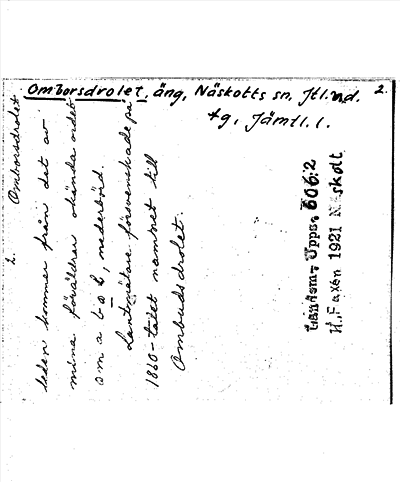 Omborsdrolet, äng, Näskotts sn, Jtl.nd. 2.
tg, Jämtl. l.
2. Omborsdrolet
leden kommer från det av
mina föräldrar okända ordet
omabob, nederbörd.
Lantmätare försvenskade på
1860-talet namnet till
Ombudsdrolet.
Landsm. Upps. 606:2
H. Faxén 1921 Näskott